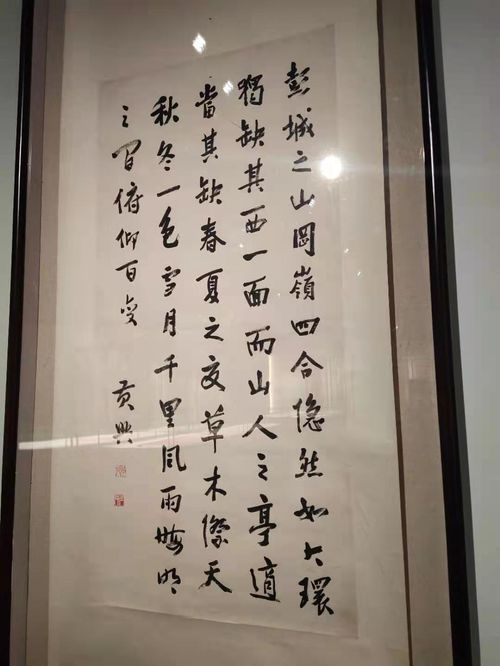 彭城之山岡嶺四合隐然如大環
獨缺其西一面而山人之亭適
當其缺春夏之交草木際天
秋冬一色雪月千里風雨晦明
之間俯仰百變
黄興